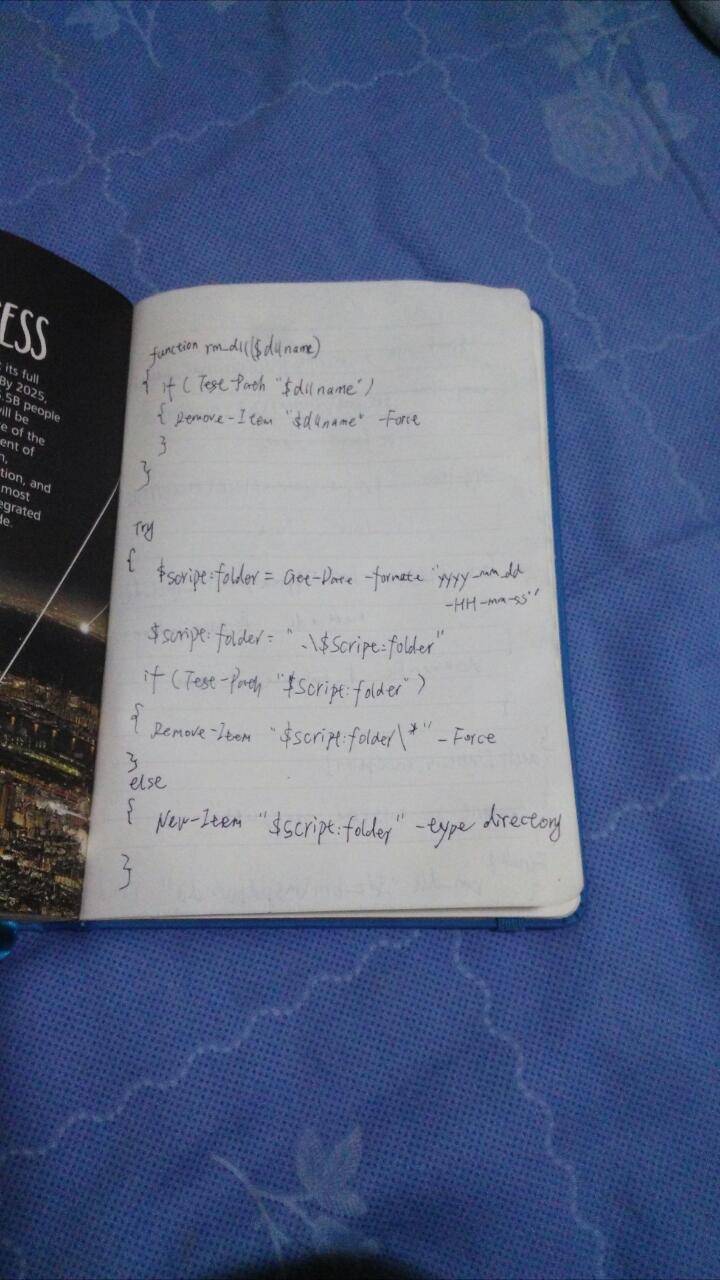 ESS
its full
By 2025,
.5B people
will be
e of the
ent of
n,
tion, and
most
egrated
de.
function rm_dll($dllname)
{ if (Test-Path "$dllname")
{ Remove-Item "$dllname" -Force
}
}
Try
{ $script:folder = Get-Date -formate "yyyy_mm_dd
-HH-mm-ss"
$script:folder = ".\$script:folder"
if (Test-Path "$script:folder")
{ Remove-Item "$script:folder\*" -Force
}
else
{ New-Item "$script:folder" -type directory
}